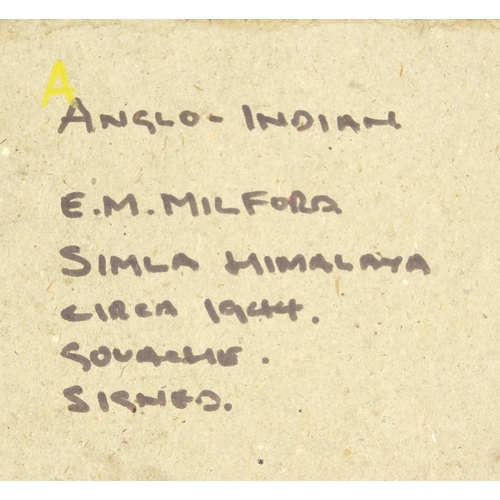 A
ANGLO-INDIAN
E.M. MILFORD
SIMLA HIMALAYA
CIRCA 1944.
GOUACHE.
SIGNED.